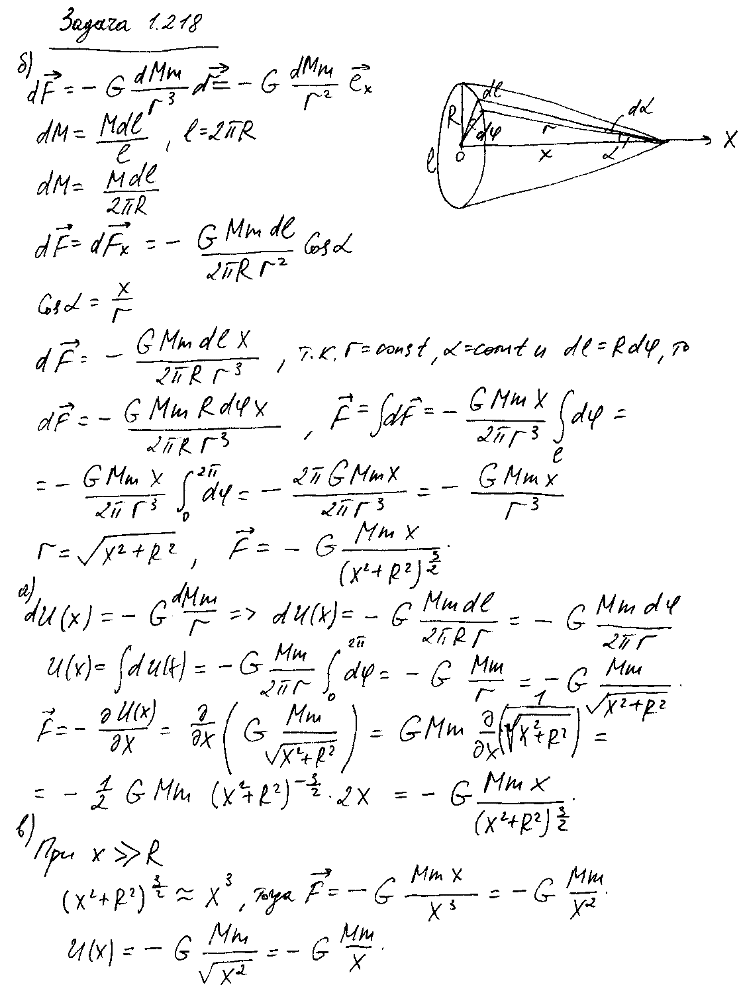 Задача 1.218
б) dF⃗ = − G dMm/r³ dr⃗ = − G dMm/r² e⃗ₓ
dM = Mdl/l , l = 2πR
dM = Mdl/2πR
dF⃗ = dF⃗ₓ = − GMmdl/2πRr² Cosα
Cosα = x/r
dF⃗ = − GMmdl x/2πRr³ , т.к. r = const, α = const и dl = Rdφ, то
dF⃗ = − GMmRdφx/2πRr³ , F⃗ = ∫dF⃗ = − GMmx/2πr³ ∫_l dφ =
= − GMmx/2πr³ ∫₀^2π dφ = − 2πGMmx/2πr³ = − GMmx/r³
r = √(x²+R²) , F⃗ = − G Mmx/(x²+R²)^(3/2).
а) dU(x) = − G dMm/r => dU(x) = − G Mmdl/2πRr = − G Mmdφ/2πr
U(x) = ∫dU(x) = − G Mm/2πr ∫₀^2π dφ = − G Mm/r = − G Mm/√(x²+R²).
F⃗ = − ∂U(x)/∂x = ∂/∂x (G Mm/√(x²+R²)) = GMm ∂/∂x (1/√(x²+R²)) =
= − 1/2 GMm (x²+R²)^(−3/2) · 2x = − G Mmx/(x²+R²)^(3/2).
в) При x ≫ R
(x²+R²)^(3/2) ≈ x³, тогда F⃗ = − G Mmx/x³ = − G Mm/x².
U(x) = − G Mm/√x² = − G Mm/x.
R dl dα
dφ r
l O x α X